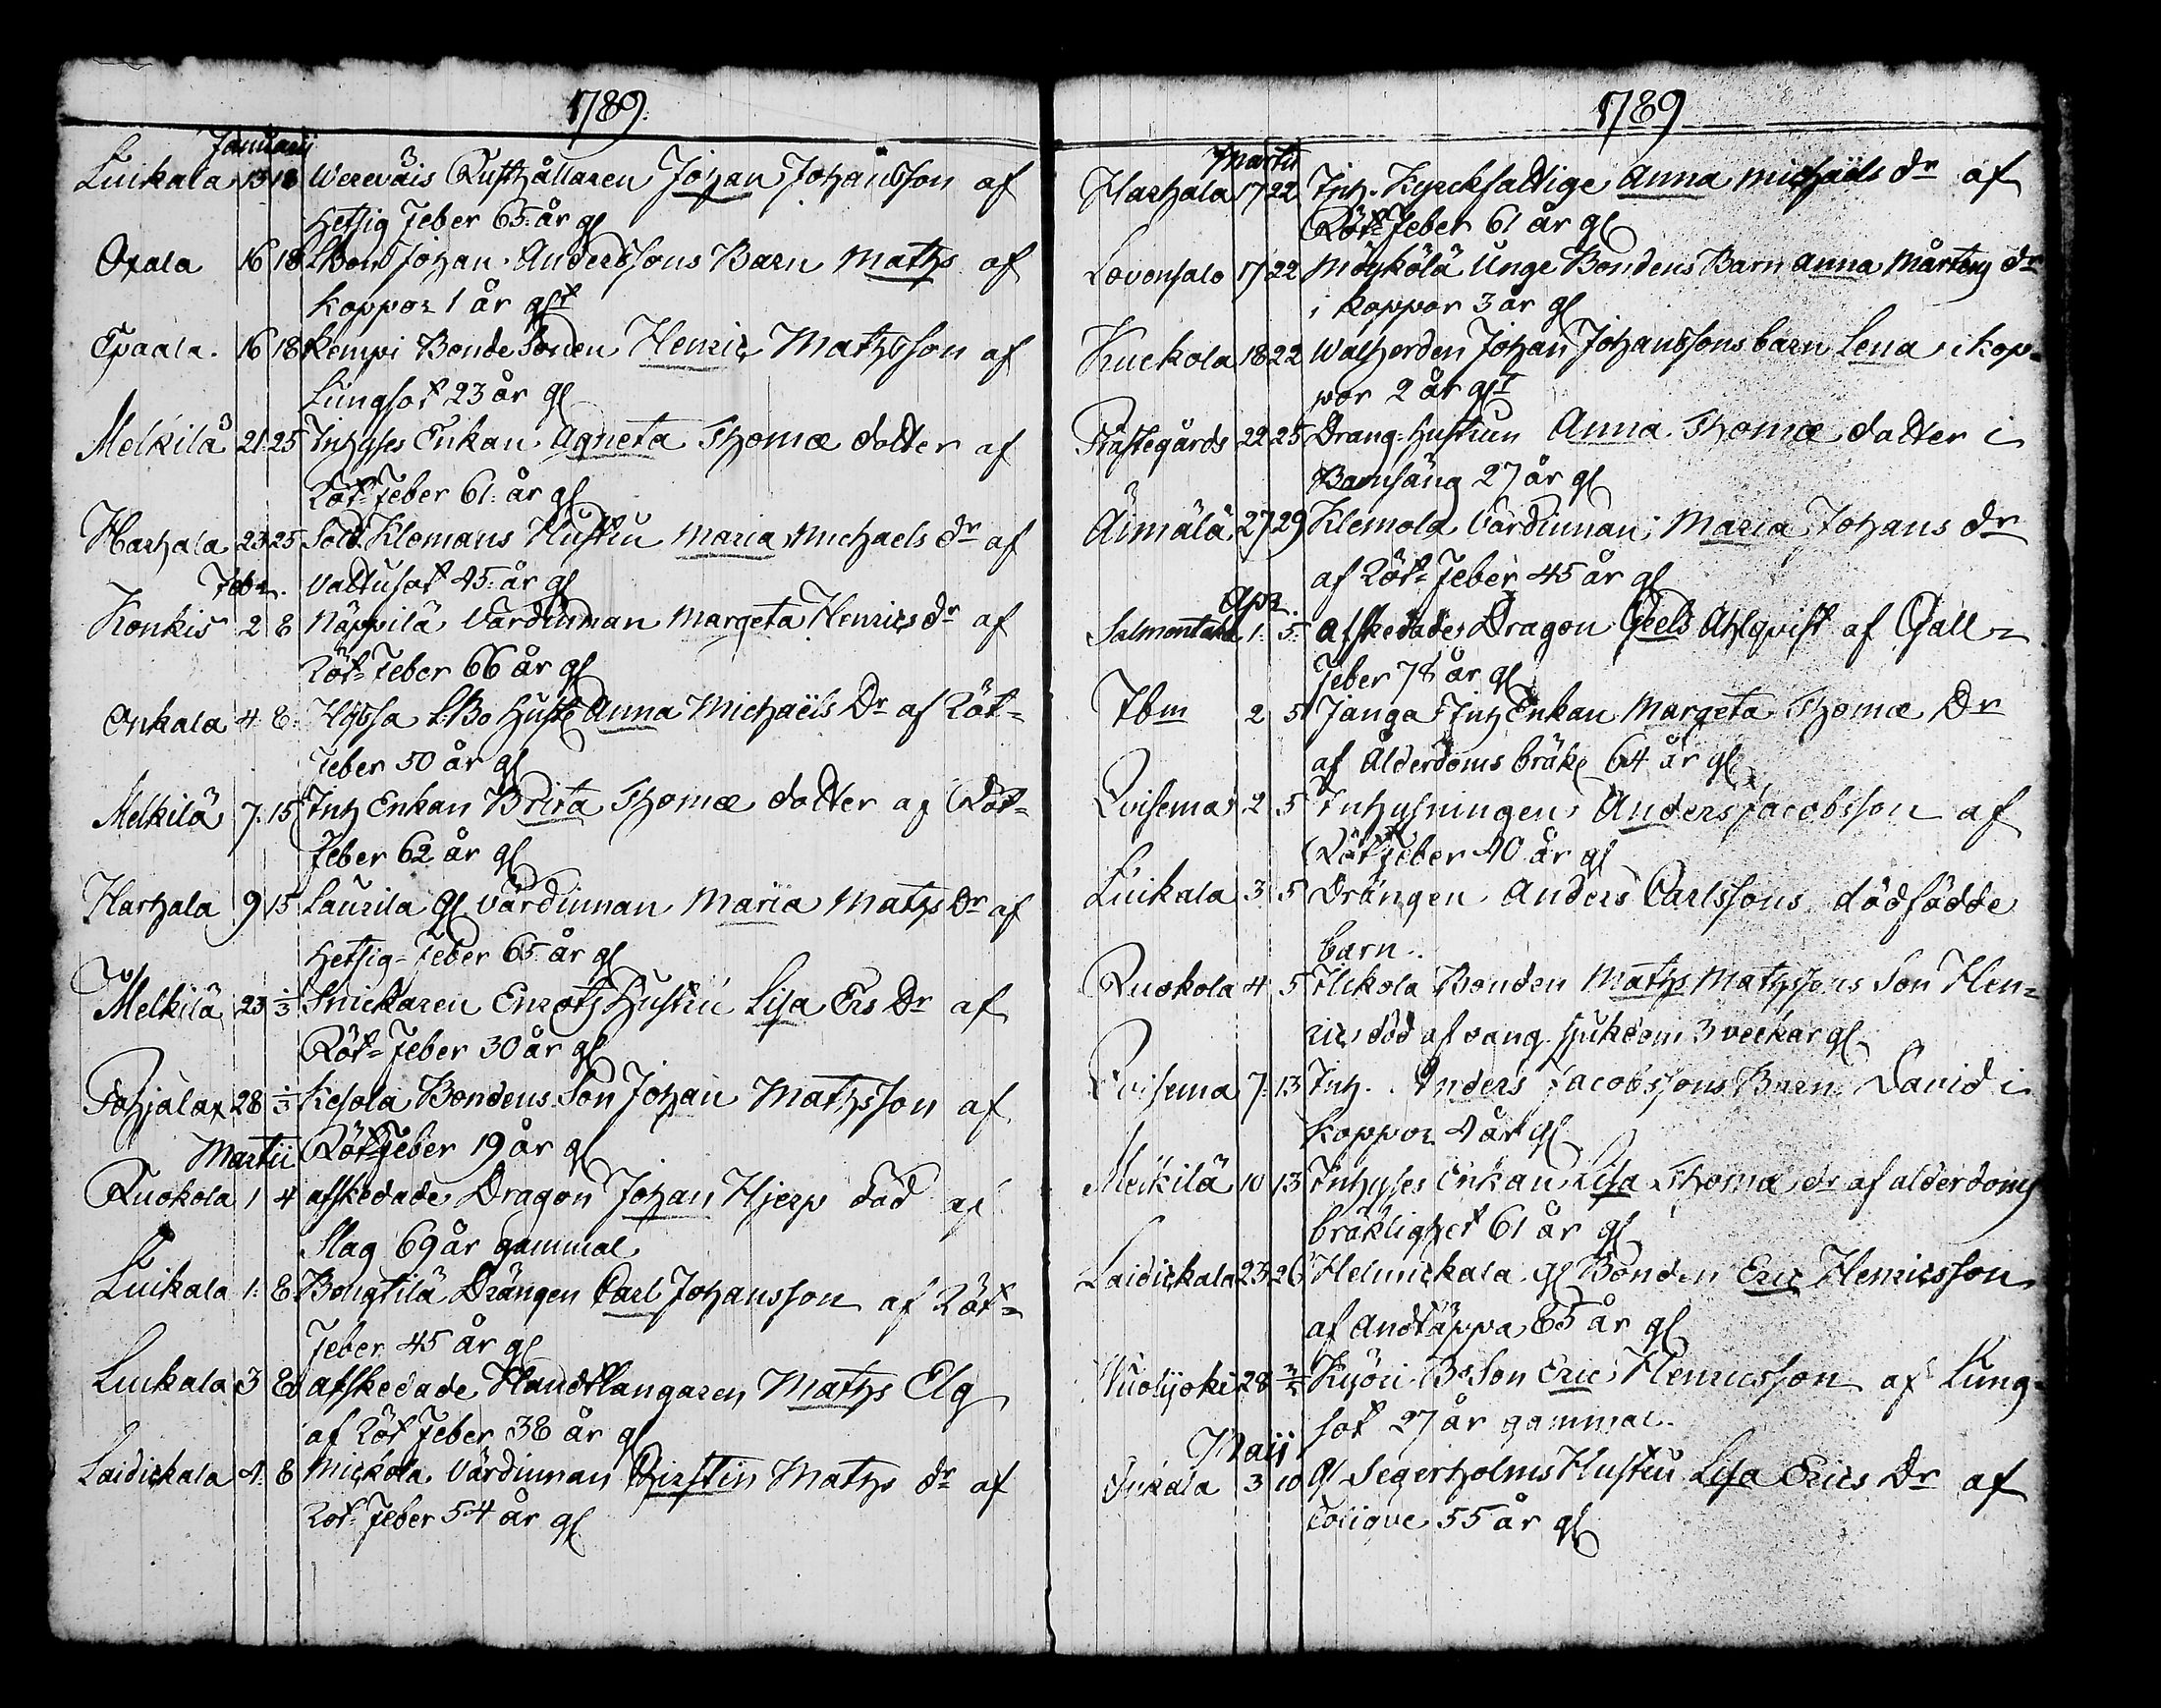 1789.
Januarii
Luikala 13 18 Wereväis Rusthållaren Johan Johansson af
Hetsig Feber 65. år gl
Oxala 16 18 Bond Johan Anderssons Barn Maths af
koppor 1 år glt
Epaala. 16 18 Kempi Bonde Sonen Henric Mathsson af
Lungsot 23 år gl
Melkilä 21 25 Inhyses Enkan Agneta Thomæ dotter af
Röt-Feber 61. år gl
Harhala 23 25 Sold. Klomans Hustru Maria Michaels dr af
Vattusot 45. år gl
Febr.
Konkis 2 8 Näppilä Värdinnan Margeta Henrics dr af
Röt-Feber 66 år gl
Orkala 4. 8. Hyssa Bo Hust Anna Michaëls Dr af Röt-
Feber 50 år gl
Melkilä 7. 15 Inh Enkan Brita Thomæ dotter af Röt-
Feber 62 år gl
Harhala 9 15 Laurila gl värdinnan Maria Maths Dr af
Hetsig-Feber 65. år gl
Melkilä 23 1/3 Snickaren Enrots Hustru Lisa Ers Dr af
Röt-Feber 30 år gl
Pohjalax 28 1/3 Kesola Bondens Son Johan Mathsson af
Röt-Feber 19 år gl
Martii
Ruokola 1 4 afskedade Dragon Johan Hjerp död af
Slag 69 år gammal
Luikala 1. 8. Drängen Carl Johansson af Röt-
Feber 45 år gl
Luikala 3 8 afskedade Handtlangaren Maths Elg
af Röt Feber 38 år gl
Laidickala 4. 8 Mickola Värdinnan Kirstin Maths dr af
Röt-Feber 54 år gl
1789
Martii
Harhala 17 22 Inh. Kyrckfattige Anna Michaëls dr af
Röt-Feber 61 år gl
Lovonsalo 17 22 Möykölä Unge Bondens Barn Anna Mårtens dr
i koppor 3 år gl
Kuckola 18 22 Walherden Johan Johanssons barn Lena i kop-
por 2 år glt
Prästegårds 22 25 Dräng. hustrun Anna Thomæ dotter i
Barnsäng 27 år gl
Äimälä 27 29 Klemola Värdinnan Maria Johans dr
af Röt-Feber 45 år gl
Apr.
Salmentaka 1. 5. afskedade Dragon Ahlqvist af Gall-
Feber 78 år gl
Ibm 2 5 Janga Inh Enkan Margeta Thomæ Dr
af Ålderdoms bräk 64 år gl
Qvisema 2 5 Inhysningen Anders Jacobsson af
Röt Feber 40 år gl
Luikala 3 5 Drängen Anders Carlssons dödfödde
barn.
Ruokola 4 5 Uckola Bonden Maths Mathssons Son Hen-
ric död af sjukdom 3 veckor gl
Qvisema 7. 13 Inh. Anders Jacobssons Barn David i
koppor 4 år gl
Melkilä 10 13 Inhyses Enkan Lisa Thomæ dr af alderdoms
bräklighet 61 år gl
Laidickala 23 26 Heinickala gl Bonden Eric Henricsson
af Andtäppa 85 år gl
Vuolijoki 28 3/5 Kyöri B. Son Eric Henricsson af Lung-
sot 27 år gammal.
Maij
Luikala 3 10 gl Segerholms Hustru Lisa Erics Dr af
Colique 55 år gl